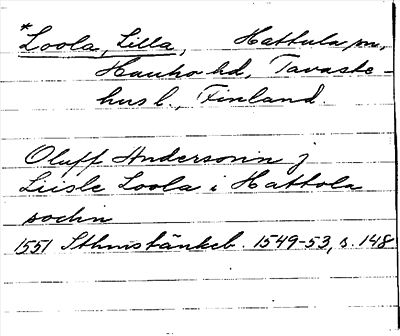 *Loola, Lilla, Hattula pn,
Hauho hd, Tavaste-
hus l., Finland.
Oluff Andersonn j
Liisle Loola i Hattola
sochn
1551 Sthmstänkeb. 1549-53, s. 148